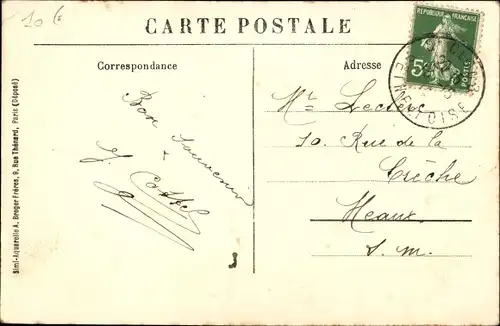 10 €
CARTE POSTALE
RÉPUBLIQUE FRANÇAISE
5c
POSTES
ET-OISE
Correspondance
Adresse
Bon souvenir
Mr Leclerc
10 Rue de la
Crèche
Meaux
S. M.
Simi-Aquarelle A. Breger Frères, 9, Rue Thénard, Paris (Déposé)